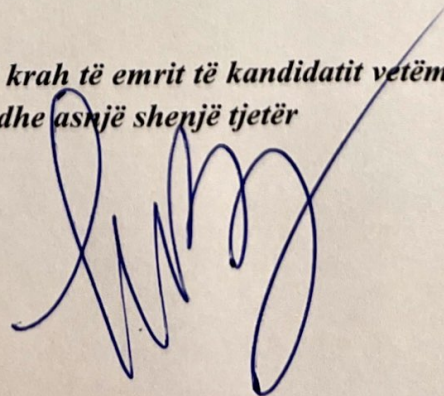 krah të emrit të kandidatit vetëm
dhe asnjë shenjë tjetër